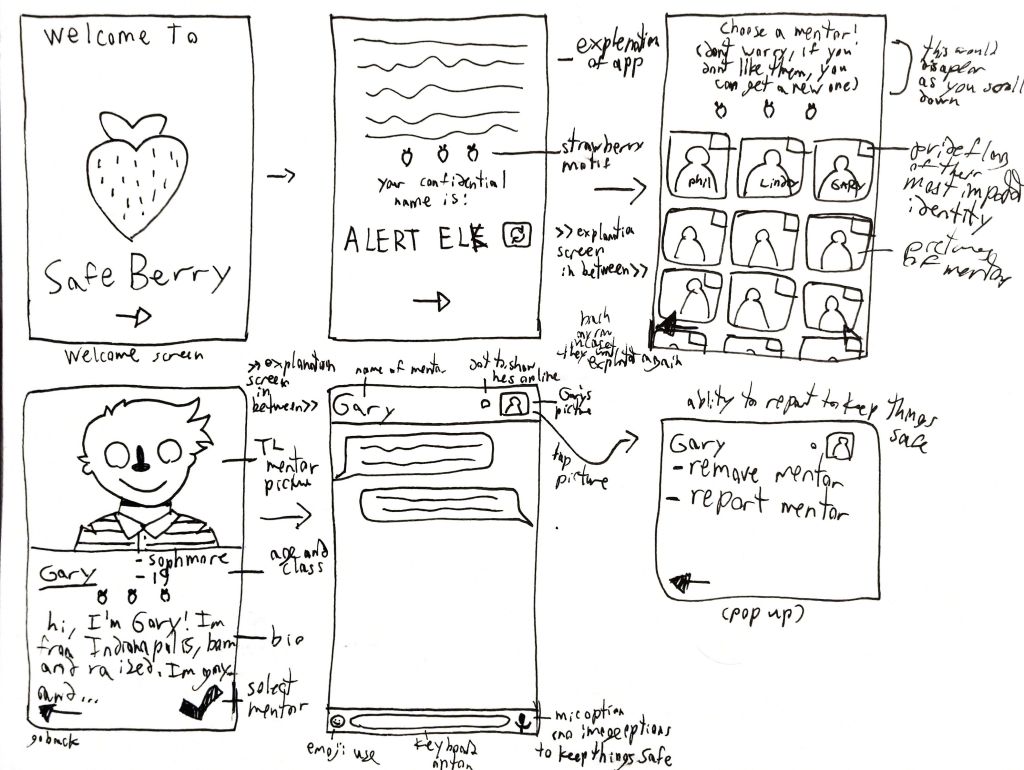 Welcome To
Safe Berry
Welcome screen
explenation
of app
strawberry
motif
your confidential
name is:
ALERT ELK
>> explanation
screen
in between>>
Choose a mentor!
(dont worry, if you
dont like them, you
can get a new one)
this would
disapear
as you scroll
down
Phil
Linda
GARY
pride flag
of their
most important
identity
picture
of mentor
back
arrow
explanation again
>> explanation
screen
in between>>
TL
mentor
picture
Gary
- sophmore
- 19
age and
class
hi, I'm Gary! Im
from Indianapolis, born
and raized. Im gay
and...
bio
select
mentor
go back
name of mentor
dot to show
hes online
Gary
Gary's
picture
tap
picture
emoji use
keyboard
option
mic option
no image options
to keep things safe
ability to report to keep things
safe
Gary
- remove mentor
- report mentor
(pop up)